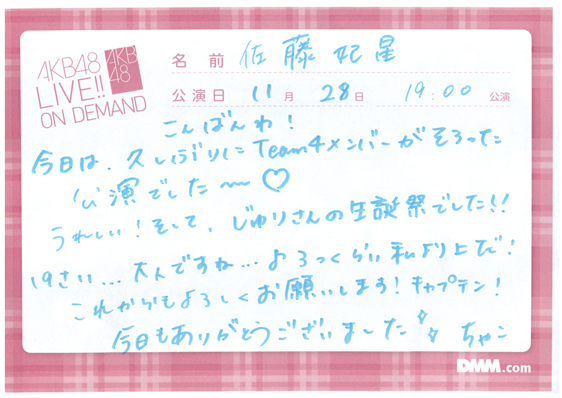 AKB48
LIVE!!
ON DEMAND
AKB
48
名前 佐藤妃星
公演日 11月 28日 19:00 公演
こんばんわ!
今日は、久しぶりにTeam4メンバーがそろった
公演でした〜♡
うれしい!そして、じゅりさんの生誕祭でした!!
19さい…大人ですね…よろっくらい私より上だ!
これからもよろしくお願いします!キャプテン!
今日もありがとうございました ちゃこ
DMM.com